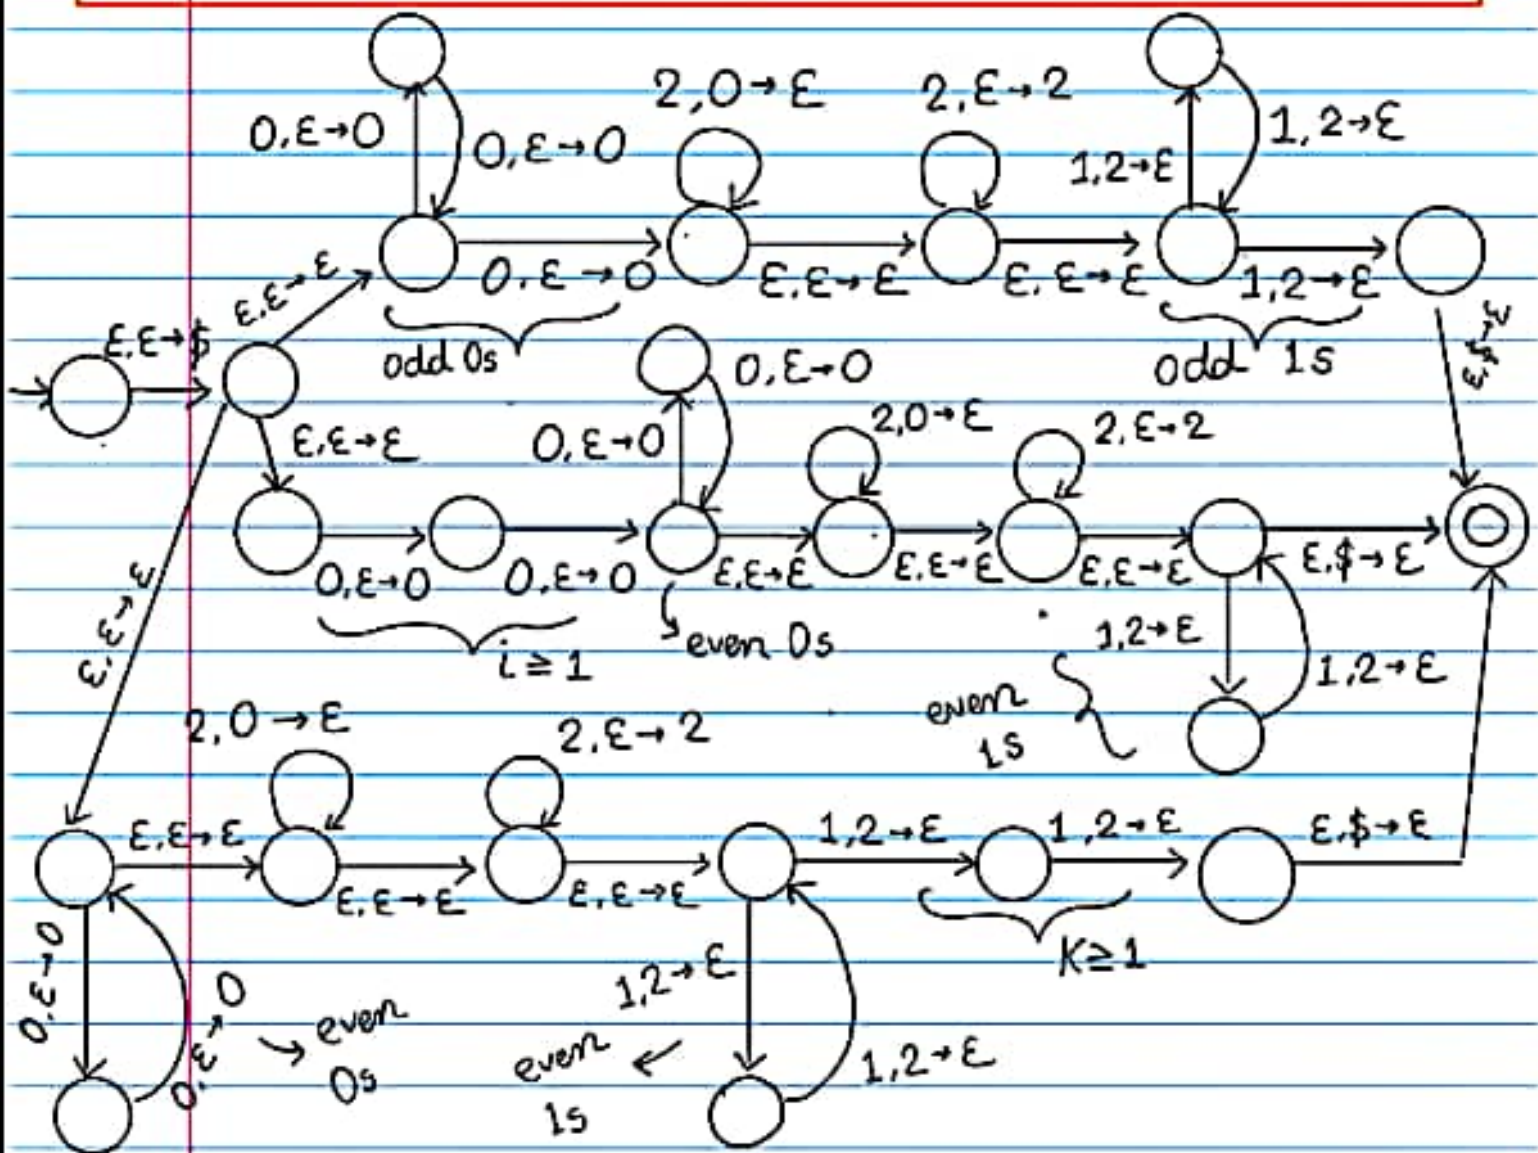 2,0→ε 2,ε→2
0,ε→0 0,ε→0 1,2→ε 1,2→ε
ε,ε→ε 0,ε→0 ε,ε→ε ε,ε→ε 1,2→ε
ε,ε→$ odd 0s odd 1s ε,$→ε
0,ε→0
ε,ε→ε 0,ε→0 2,0→ε 2,ε→2
0,ε→0 0,ε→0 ε,ε→ε ε,ε→ε ε,ε→ε ε,$→ε
ε,ε→ε i≥1 even 0s 1,2→ε 1,2→ε
even
1s
2,0→ε 2,ε→2
ε,ε→ε ε,ε→ε ε,ε→ε 1,2→ε 1,2→ε ε,$→ε
K≥1
0,ε→0 0,ε→0 even
0s
1,2→ε 1,2→ε
even
1s